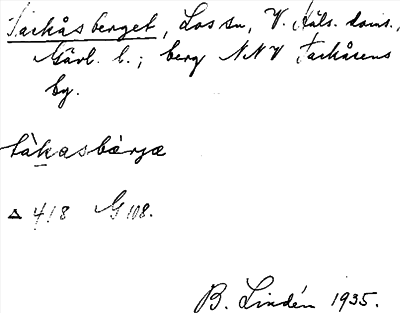 Tackåsberget, Los sn, V. Häls. doms.,
Gävl. l.; berg NNV Tackåsens
by.
tàkasbærjæ
▵ 418 G 108.
B. Lindén 1935.